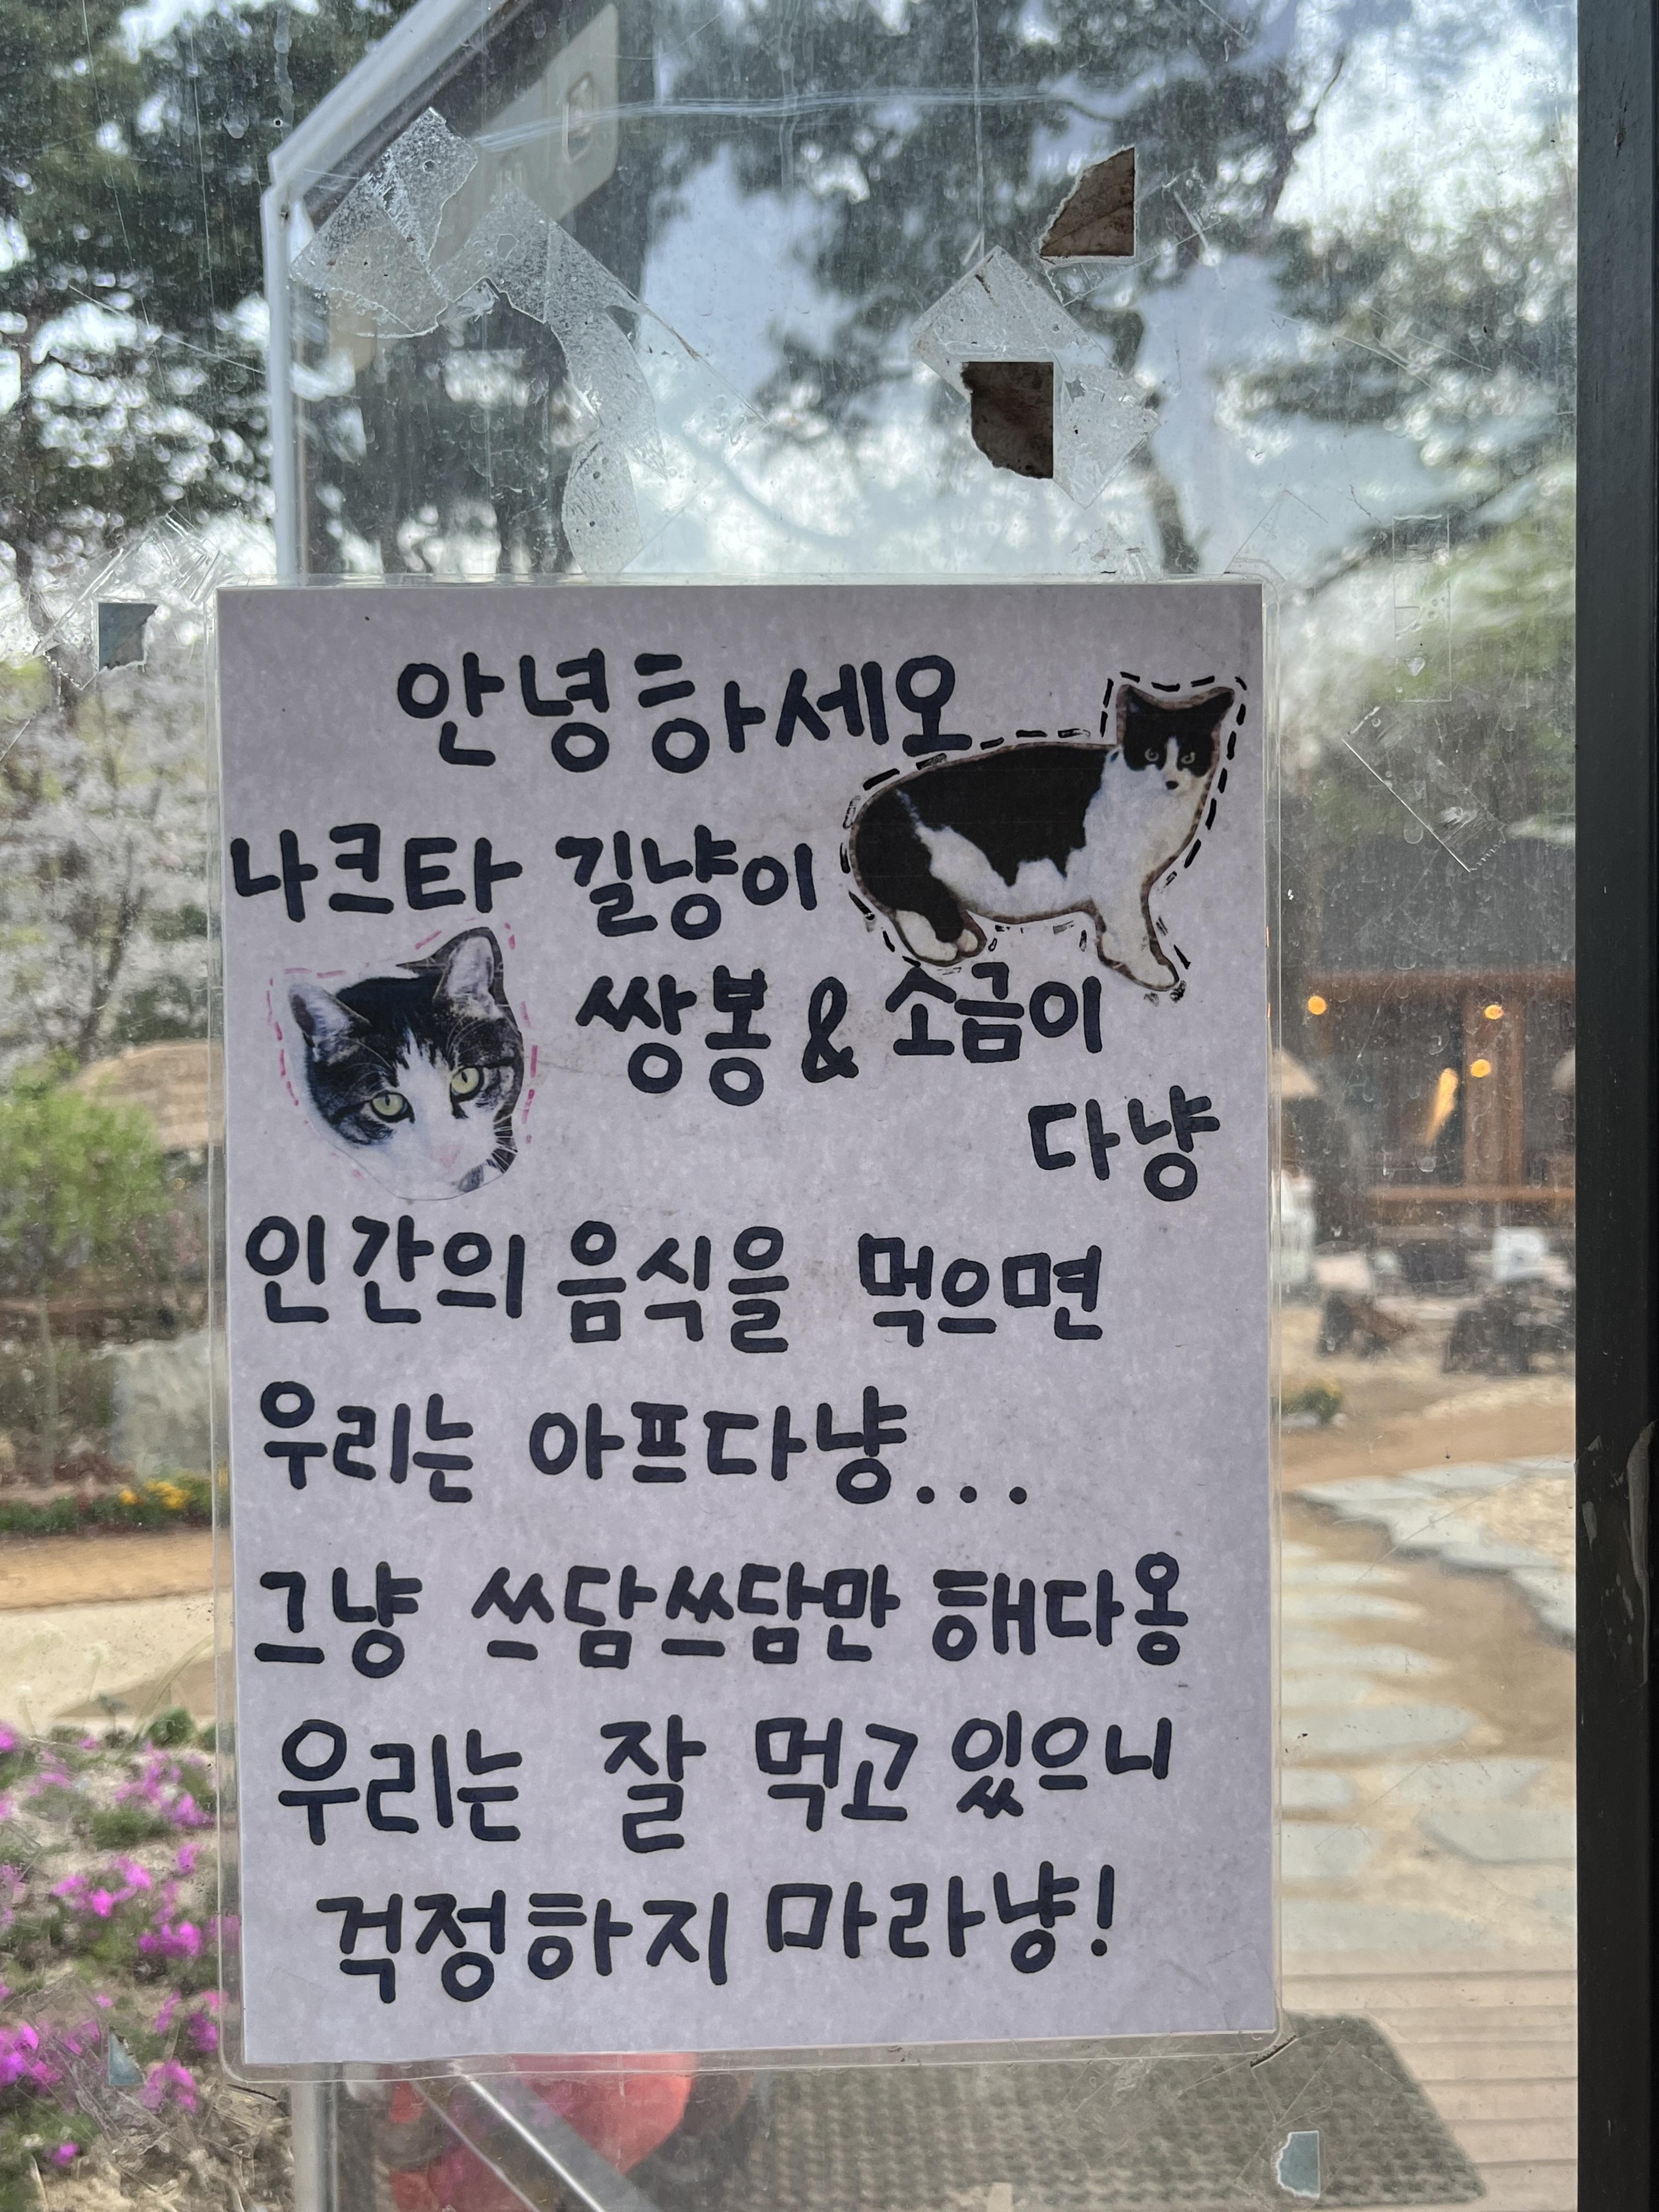 안녕하세오
나크타 길냥이
쌍봉 & 소금이
다냥
인간의 음식을 먹으면
우리는 아프다냥...
그냥 쓰담쓰담만 해다옹
우리는 잘 먹고 있으니
걱정하지 마라냥!